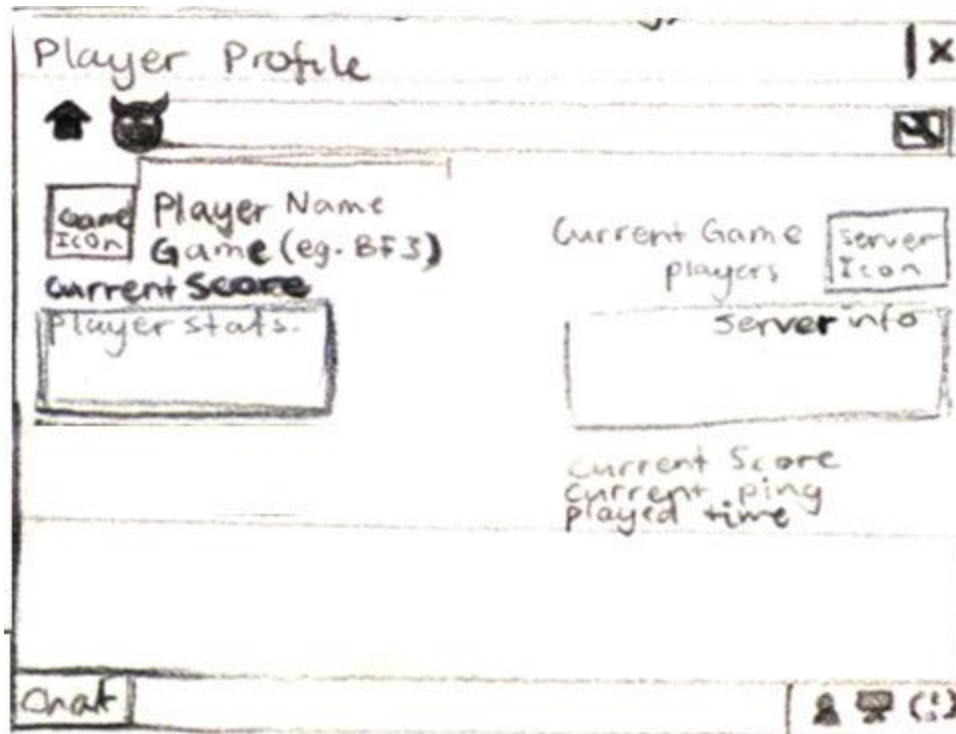 Player Profile
X
Game
Icon
Player Name
Game (eg. BF3)
Current Score
Player stats.
Current Game
players
Server
Icon
Server info
Current Score
current ping
played time
Chat